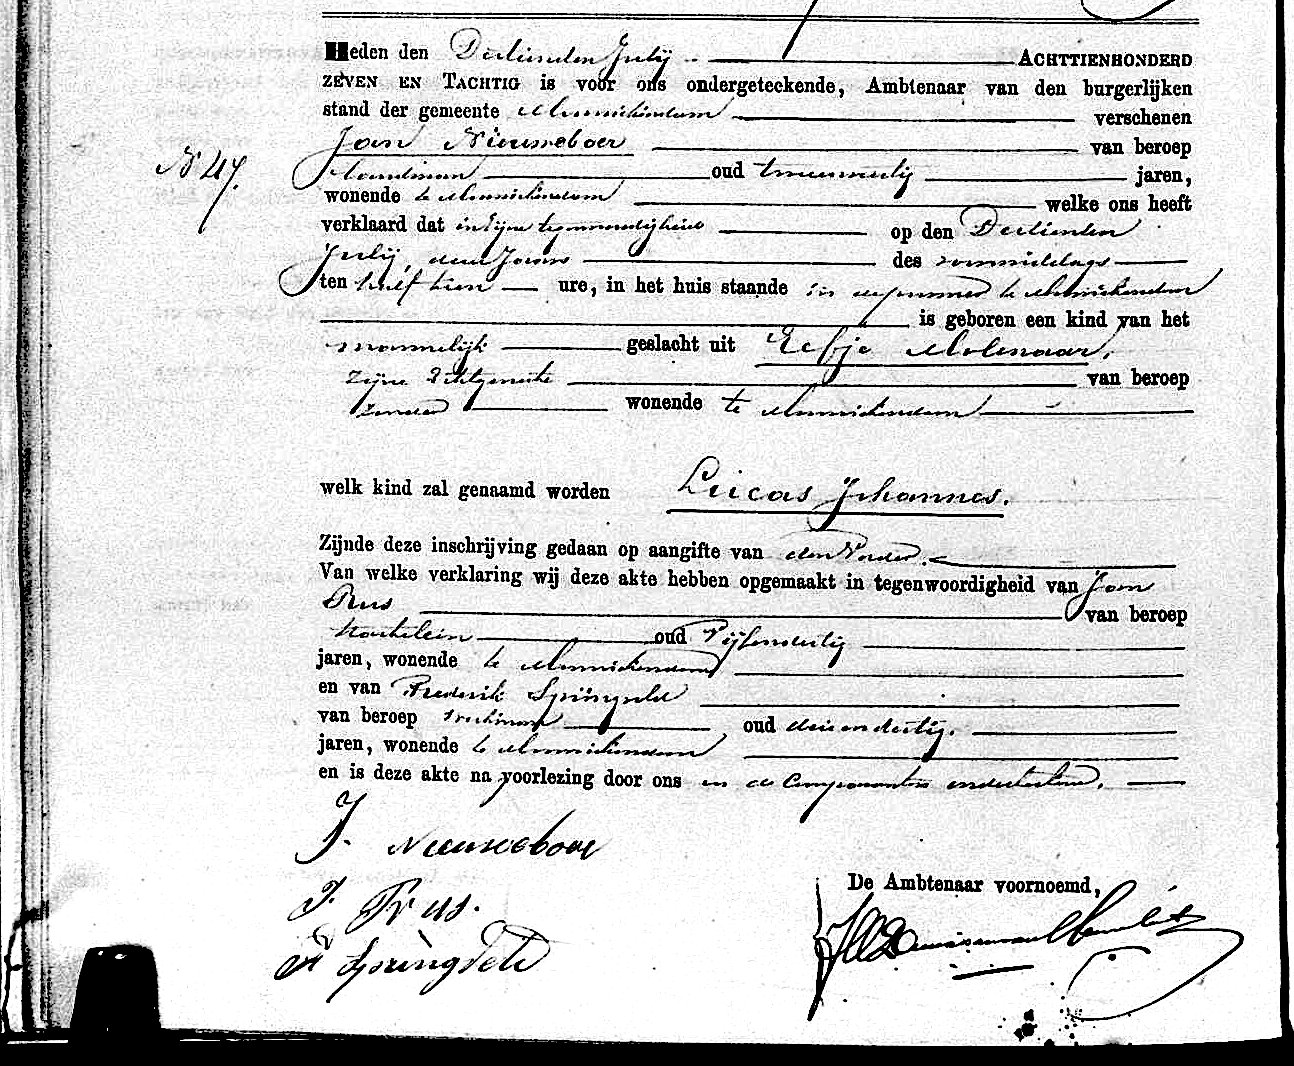 Heden den Dertienden Julij ACHTTIENHONDERD
ZEVEN EN TACHTIG is voor ons ondergeteekende, Ambtenaar van den burgerlijken
stand der gemeente Monnickendam verschenen
Jan Nieuweboer van beroep
N 47. Landman oud tweeendertig jaren,
wonende te Monnickendam welke ons heeft
verklaard dat in zijne tegenwoordigheid op den Dertienden
Julij, dezes Jaars des voormiddags
ten half tien ure, in het huis staande te Monnickendam
is geboren een kind van het
mannelijk geslacht uit Eefje Molenaar,
zijne Echtgenoote van beroep
zonder wonende te Monnickendam
welk kind zal genaamd worden Lucas Johannes.
Zijnde deze inschrijving gedaan op aangifte van den Vader.
Van welke verklaring wij deze akte hebben opgemaakt in tegenwoordigheid van Jan
Prus van beroep
kastelein oud Vijfendertig
jaren, wonende te Monnickendam
en van Frederik Springveld
van beroep oud drieendertig.
jaren, wonende te Monnickendam
en is deze akte na voorlezing door ons en de Comparanten onderteekend.
J. Nieuweboer
De Ambtenaar voornoemd,
J. Prus.
F Springveld